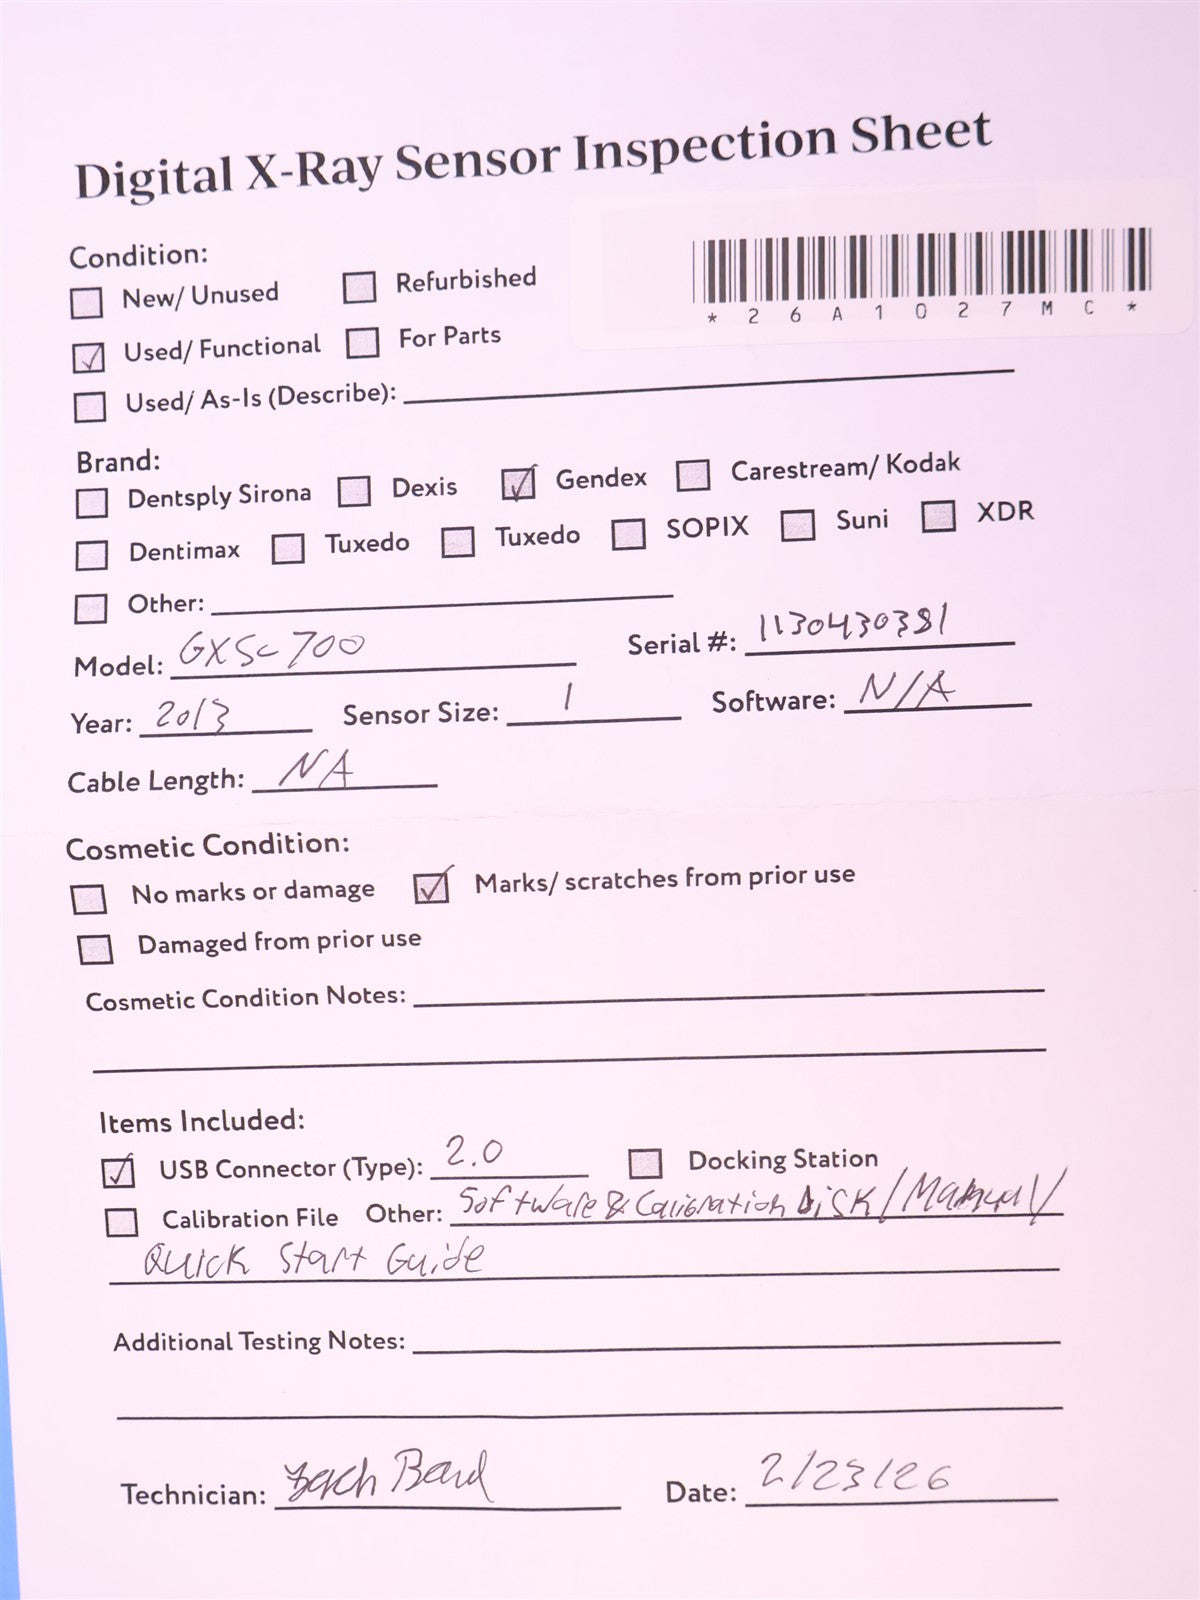 Digital X-Ray Sensor Inspection Sheet
Condition:
New/ Unused Refurbished
*26A1027MC*
Used/ Functional For Parts
Used/ As-Is (Describe):
Brand:
Dentsply Sirona Dexis Gendex Carestream/ Kodak
Dentimax Tuxedo Tuxedo SOPIX Suni XDR
Other:
Model: GXS-700 Serial #: 1130430381
Year: 2013 Sensor Size: 1 Software: N/A
Cable Length: NA
Cosmetic Condition:
No marks or damage Marks/ scratches from prior use
Damaged from prior use
Cosmetic Condition Notes:
Items Included:
USB Connector (Type): 2.0 Docking Station
Calibration File Other: Software & Calibration Disk/Manual/
Quick Start Guide
Additional Testing Notes:
Technician: Zach Date: 2/23/26